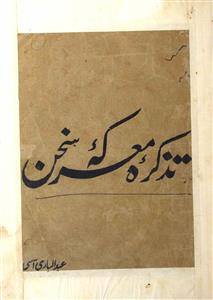 تذکرۂ معرکۂ سخن
عبدالباری آسی